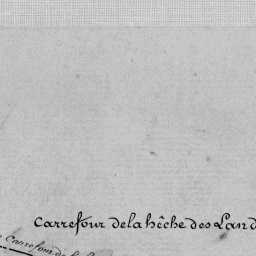 Carrefour de la hêche des Land
Carrefour de la